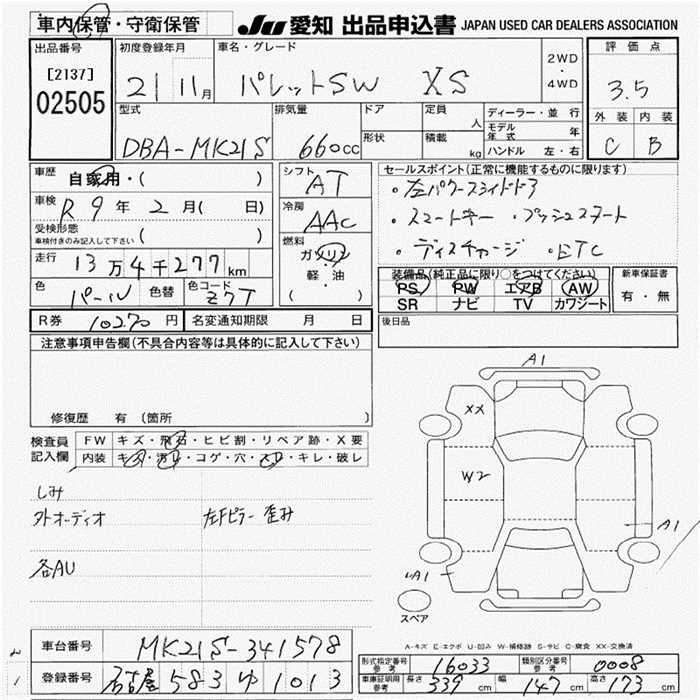 車内保管・守衛保管
JU 愛知 出品申込書 JAPAN USED CAR DEALERS ASSOCIATION
出品番号
[2137]
02505
初度登録年月
21 11月
車名・グレード
パレットSW XS
2WD
・
4WD
評価点
3.5
外装 内装
C B
型式
DBA-MK21S
排気量
660cc
ドア
形状
定員
人
積載
kg
ディーラー・並行
モデル年式 年
ハンドル 左・右
車歴
自家用・( )
車検
R 9年 2月( 日)
受検形態
車検付きのみ記入して下さい ( )
走行
13万4千277km
色
パール
色替
色コード
Z7T
シフト
AT
冷房
AAC
燃料
ガソリン
軽・油
( )
セールスポイント(正常に機能するものに限ります)
・左パワースライドドア
・スマートキー ・プッシュスタート
・ディスチャージ ・ETC
装備品(純正品に限り○をつけてください)
PS PW エアB AW
SR ナビ TV カワシート
新車保証書
有・無
後日品
R券 10270円
名変通知期限 月 日
注意事項申告欄(不具合内容等は具体的に記入して下さい)
修復歴 有 (箇所 )
検査員記入欄
FW キズ・飛石・ヒビ割・リペア跡・X要
内装 キズ・汚れ・コゲ・穴・スレ・キレ・破レ
しみ
外オーディオ
左Fピラー歪み
各AU
A1
XX
W2
A1
A1
スペア
A-キズ E-エクボ U-凹み W-補修跡 S-サビ C-腐食 XX-交換済
車台番号
MK21S-341578
登録番号
名古屋 583 ゆ 1013
型式指定番号
参考
16033
類別区分番号
参考
0008
車庫証明用
参考
長さ 339cm
幅 147cm
高さ 173cm